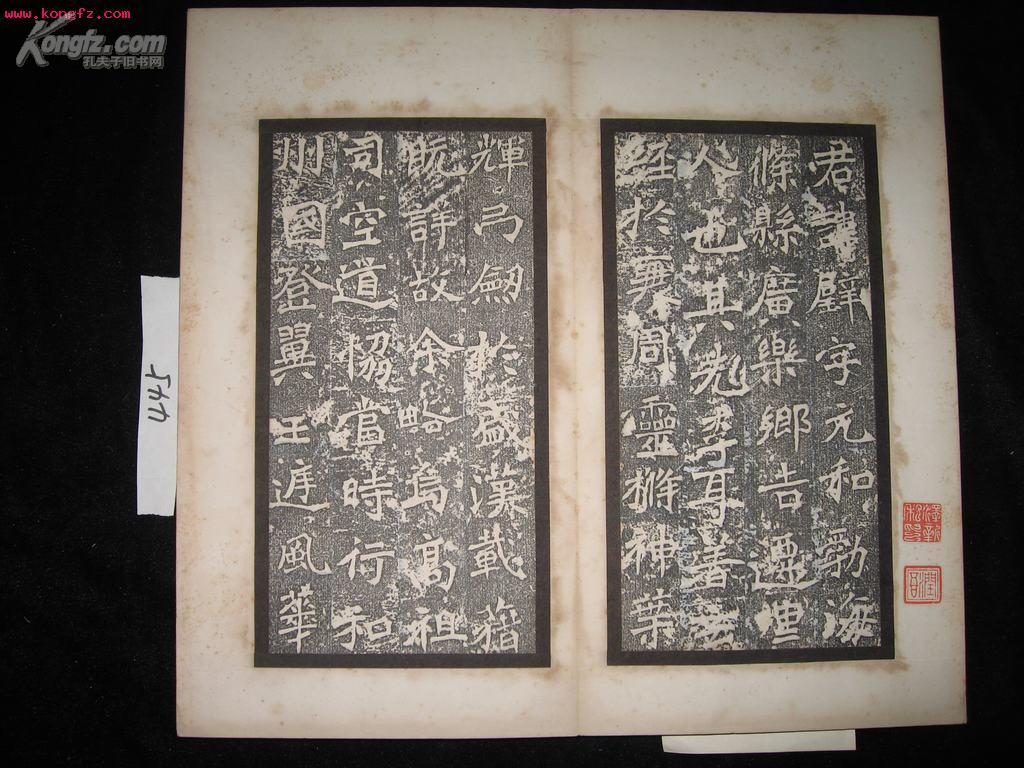 www.kongfz.com
Kongfz.com
孔夫子旧书网
君諱璧字元和勃海
條縣廣樂鄉吉遷里
人也其先李耳著
經於 周靈 神葉
輝弓劔於盛漢載籍
既詳故余略焉高祖
司空道協當時行和
州國登翼王遅風華
544